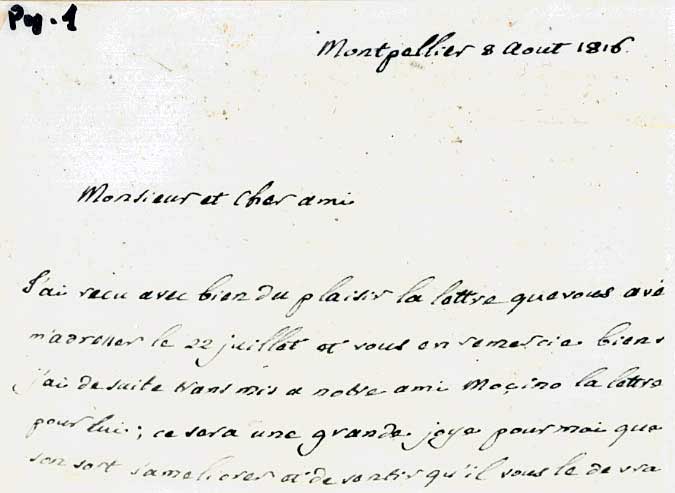 Pg. 1
Montpellier 8 Aout 1816
Monsieur et cher ami
J'ai recu avec bien du plaisir la lettre que vous avé
m'adresser le 22 juillet et vous en remercie biens
j'ai de suite transmis a notre ami Moçino la lettre
pour lui; ce sera une grande joye pour moi que
son sort s'ameliorer et de sentir qu'il vous le devra